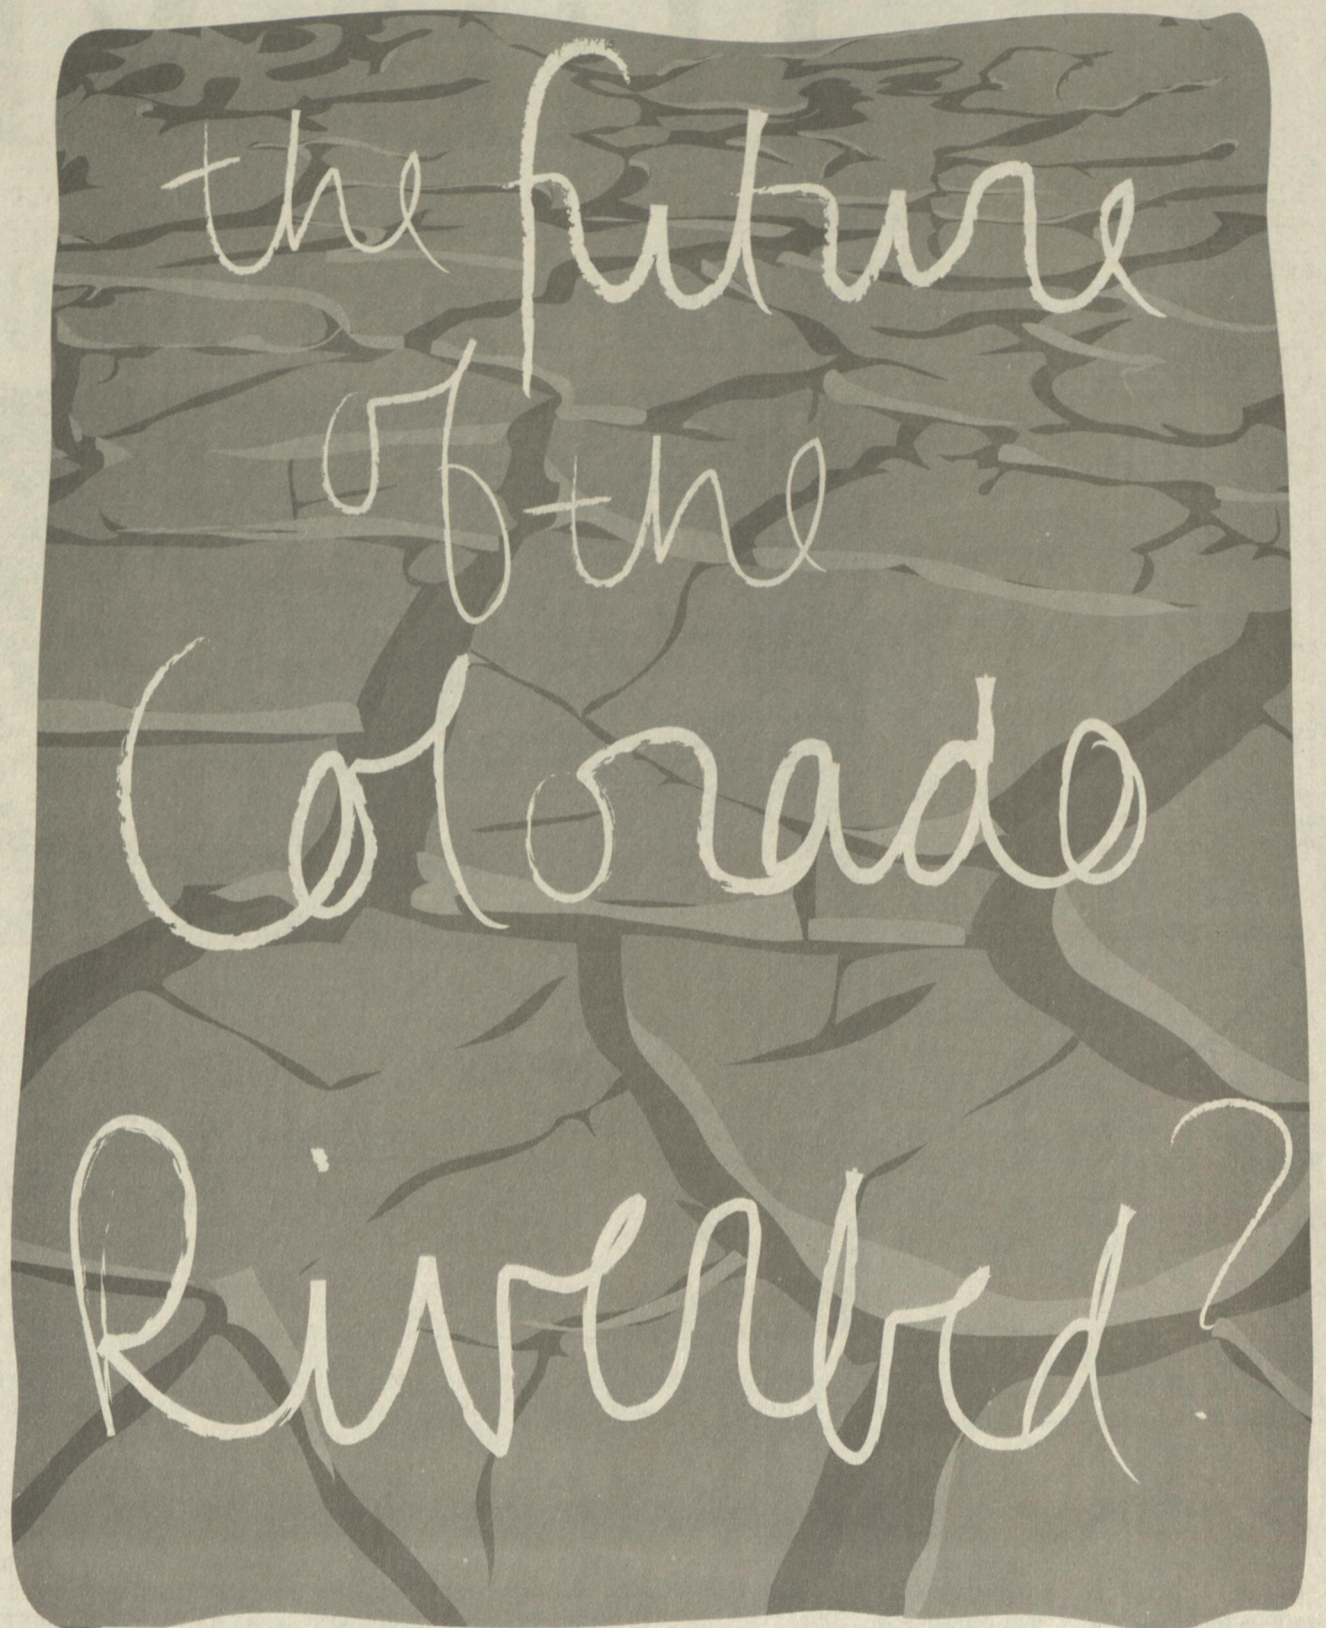 the future
of the
Colorado
Riverbed?